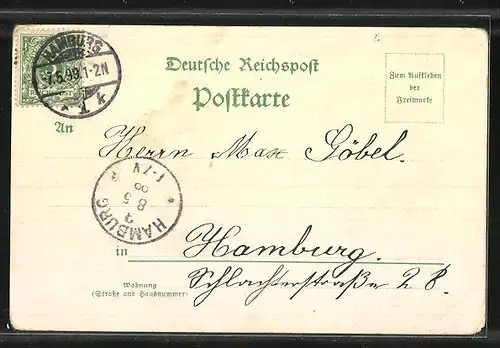 HAMBURG
7.5.98.1-2N
* 1 k
REICHSPOST
Deutsche Reichspost
Postkarte
Zum Aufkleben
der
Freimarke
An
Herrn Max Göbel.
HAMBURG
8 5
1-7V
in Hamburg.
Schlachterstraße 28.
Wohnung
(Straße und Hausnummer)